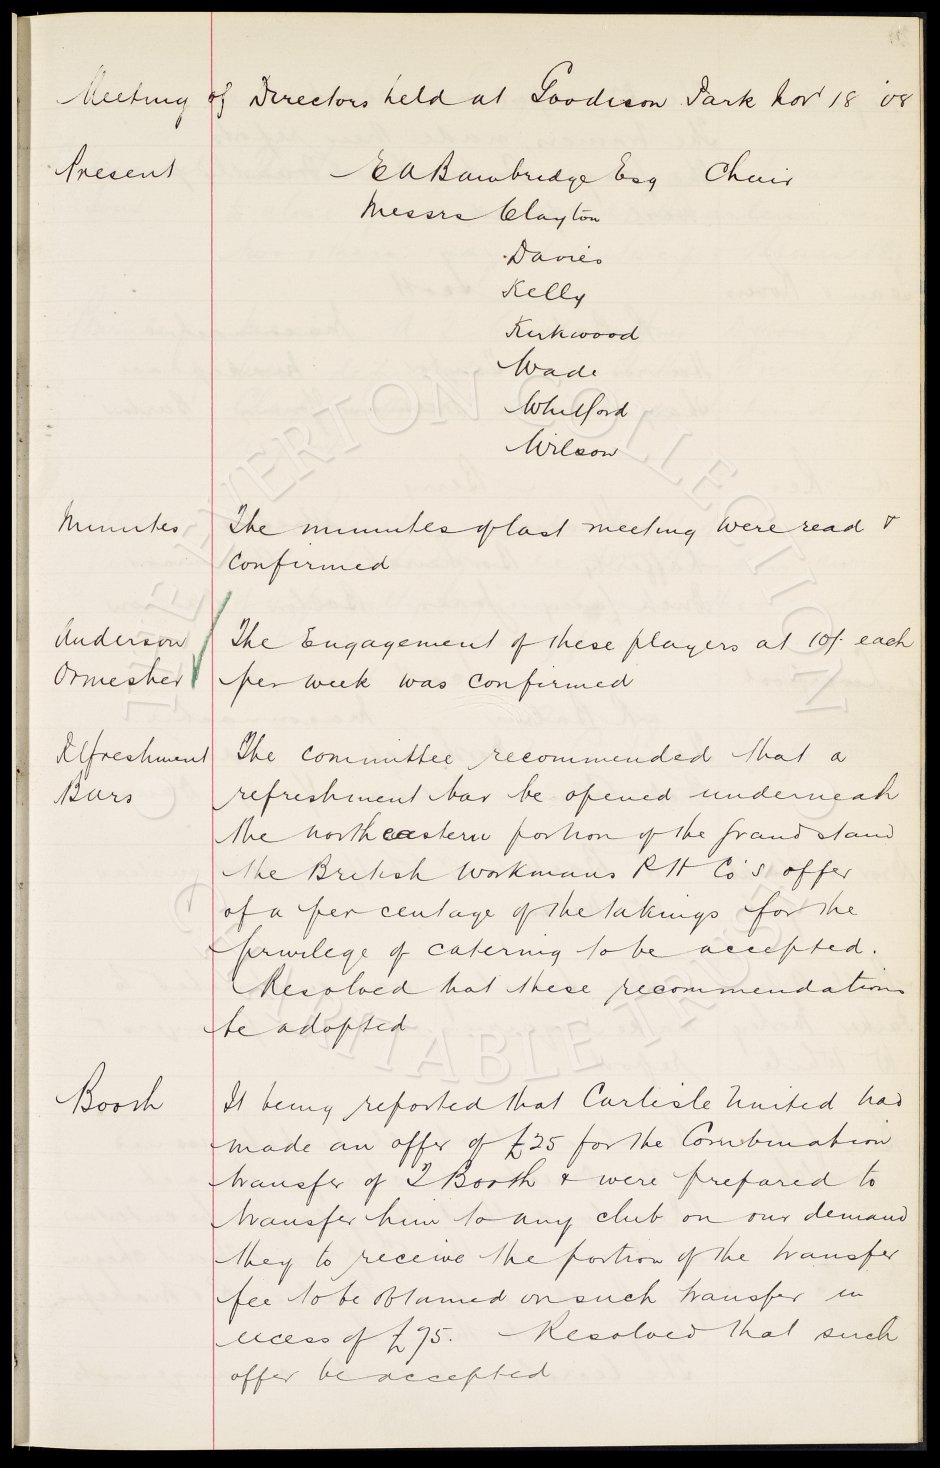 Meeting of Directors held at Goodison Park Nov 18 '08
Present E A Bainbridge Esq Chair
Messrs Clayton
Davies
Kelly
Kirkwood
Wade
Whitford
Wilson
Minutes The minutes of last meeting were read &
confirmed
Anderson The Engagement of these players at 10/- each
Ormesher per week was confirmed
Refreshment The committee recommended that a
Bars refreshment bar be opened underneath
the north eastern portion of the grand stand
the British Workmans P H Co's offer
of a per centage of the takings for the
privilege of catering to be accepted.
Resolved that these recommendations
be adopted
Booth It being reported that Carlisle United had
made an offer of £25 for the Combination
transfer of T Booth & were prepared to
transfer him to any club on our demand
they to receive the portion of the transfer
fee to be obtained on such transfer in
excess of £75. Resolved that such
offer be accepted
THE EVERTON COLLECTION
CHARITABLE TRUST